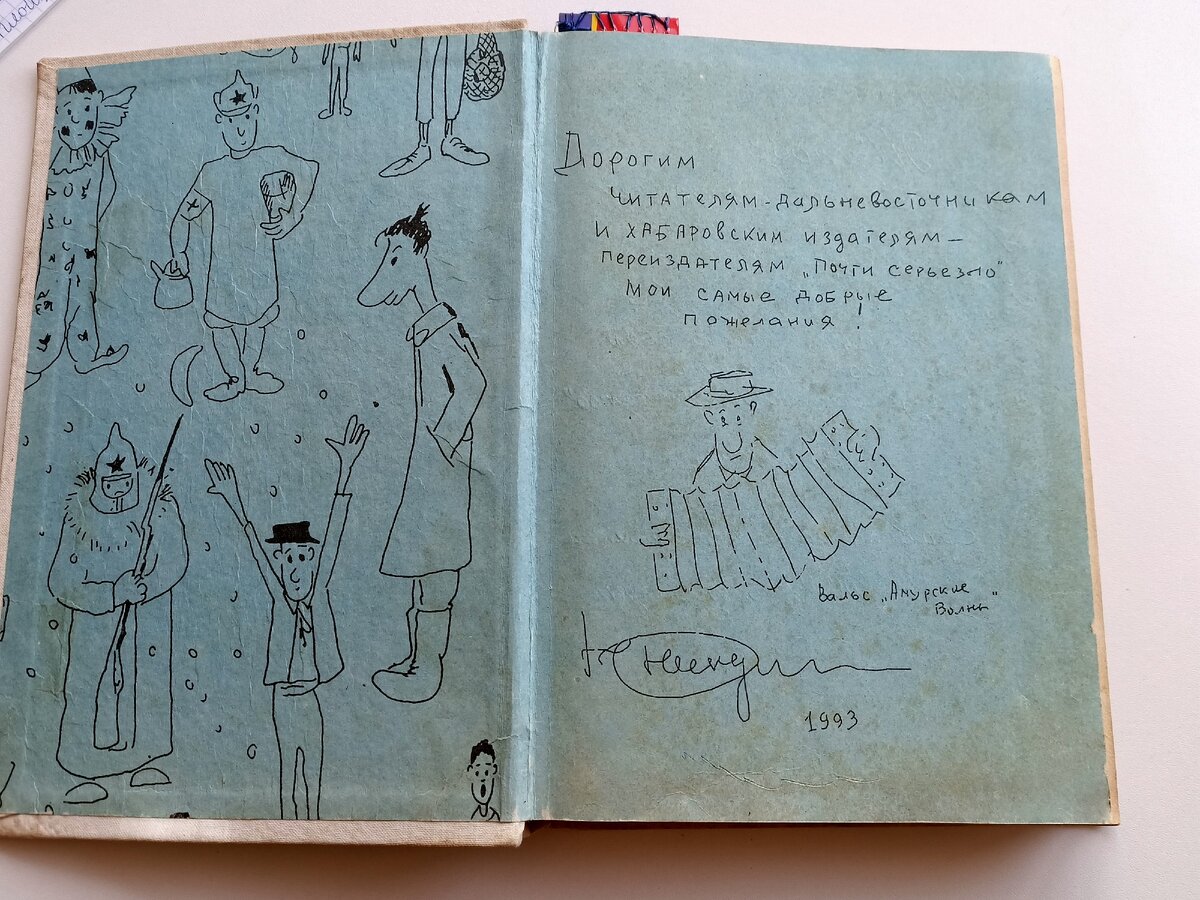 Дорогим
читателям-дальневосточникам
и хабаровским издателям –
переиздателям „Почти серьезно"
мои самые добрые
пожелания!
Вальс „Амурские
Волны"
Ю Никулин
1993